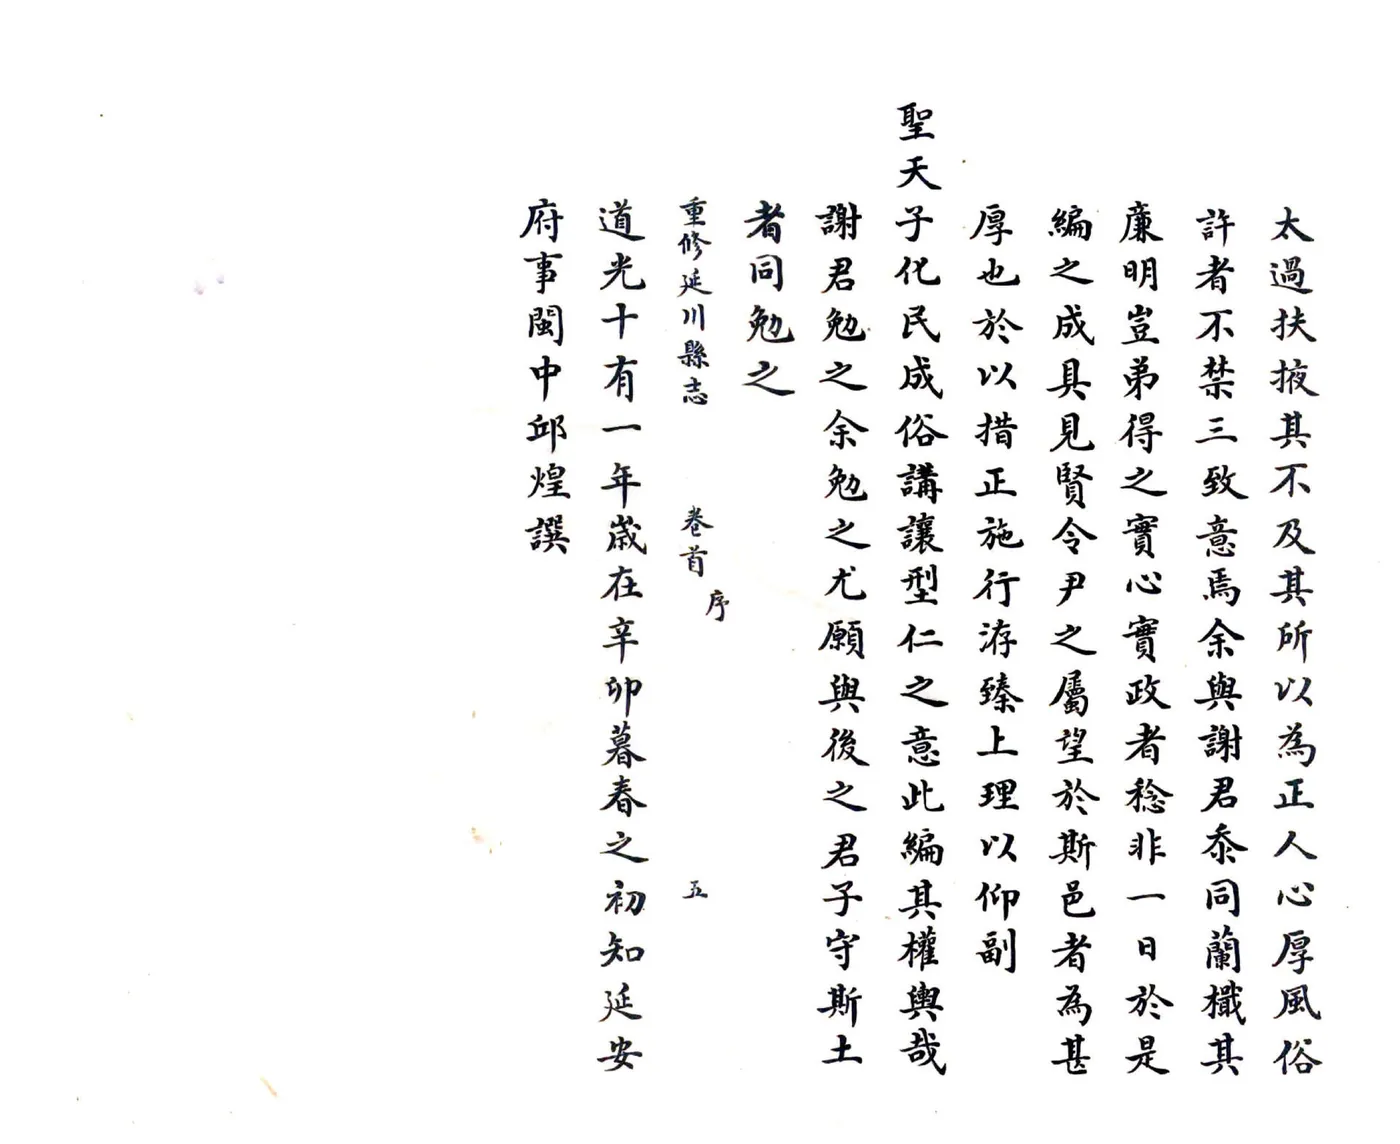 太過扶掖其不及其所以為正人心厚風俗
許者不禁三致意焉余與謝君忝同蘭檥其
廉明豈弟得之實心實政者稔非一日於是
編之成具見賢令尹之屬望於斯邑者為甚
厚也於以措正施行洊臻上理以仰副
聖天子化民成俗講讓型仁之意此編其權輿哉
謝君勉之余勉之尤願與後之君子守斯土
者同勉之
重修延川縣志 卷首 序 五
道光十有一年歲在辛卯暮春之初知延安
府事閩中邱煌譔